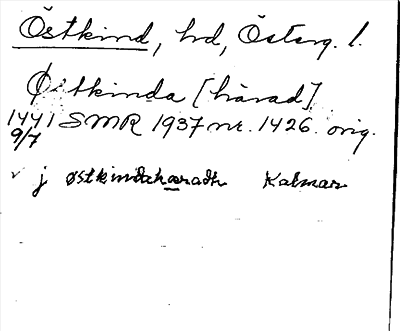 Östkind, hd, Österg. l.
Östkinda [härad]
1441 SMR 1937 nr. 1426. orig.
9/7
v j østkindahæradh Kalmar